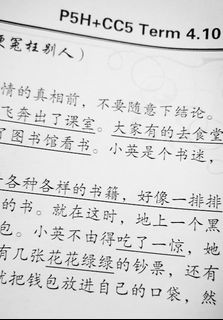 P5H+CC5 Term 4.10
冤枉别人）
情的真相前，不要随意下结论。
飞奔出了课室。大家有的去食堂
了图书馆看书。小英是个书迷，
各种各样的书籍，好像一排排
的书。就在这时，地上一个黑
包。小英不由得吃了一惊，她
有几张花花绿绿的钞票，还有
就把钱包放进自己的口袋，然